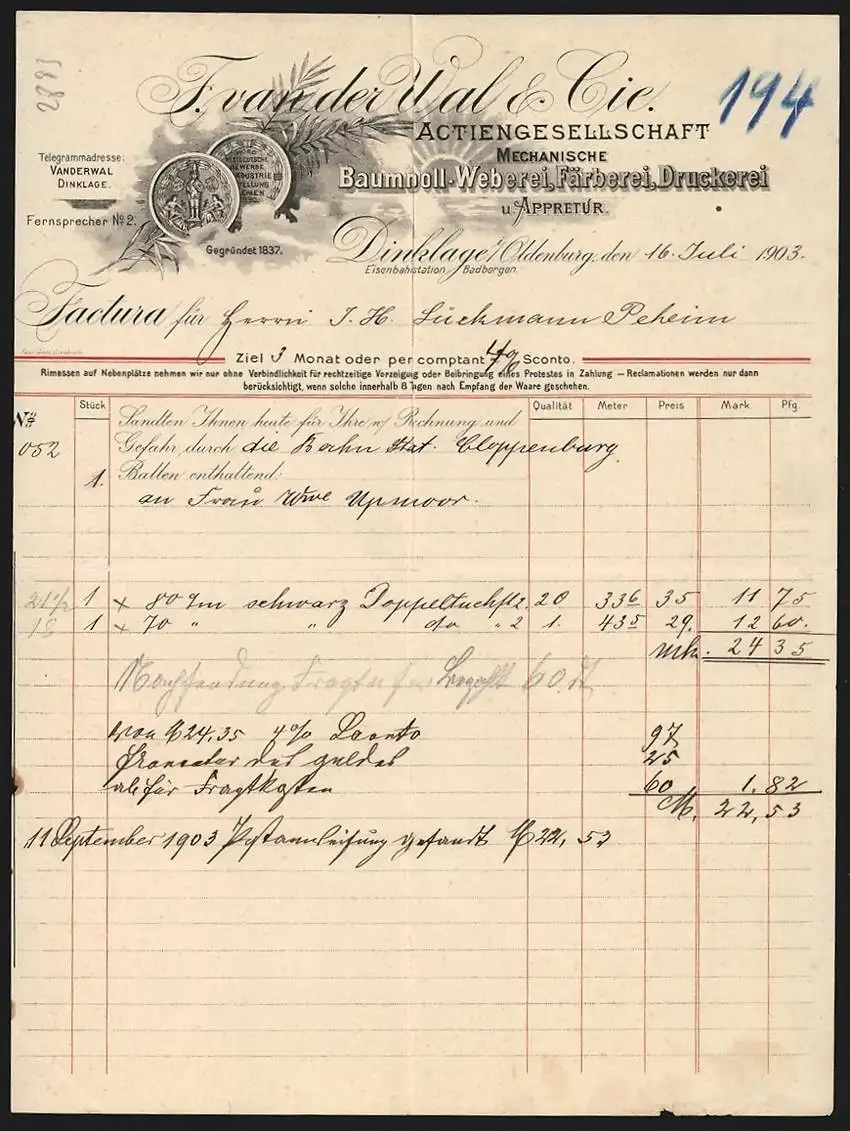 2881
F. van der Wal & Cie.
194
ACTIENGESELLSCHAFT
MECHANISCHE
Baumwoll-Weberei, Färberei, Druckerei
u. APPRETUR.
Telegrammadresse:
VANDERWAL
DINKLAGE.
Fernsprecher No 2.
Gegründet 1837.
Dinklage i/Oldenburg, den 16. Juli 1903.
Eisenbahnstation Badbergen
Factura für Herrn J. H. Lückmann Peheim
Ziel 3 Monat oder per comptant 4% Sconto.
Rimessen auf Nebenplätze nehmen wir nur ohne Verbindlichkeit für rechtzeitige Vorzeigung oder Beibringung eines Protestes in Zahlung — Reclamationen werden nur dann
berücksichtigt, wenn solche innerhalb 8 Tagen nach Empfang der Waare geschehen.
No Stück Qualität Meter Preis Mark Pfg.
Sandten Ihnen heute für Ihre w/ Rechnung und
052 Gefahr, durch die Bahn Stat. Cloppenburg
1. Ballen enthaltend:
an Frau Wwe Upmoor.
21 1/2 1 x 80 c/m schwarz Doppeltuch 2 20 33 6 35 11 75
18 1 x 70 " " do " 2 1. 43 5 29. 12 60.
Mk. 24 35
Nachsendung Bezahlt 60
von M 24,35 4% Sconto 97
des geldes 25
ab für Fragtkosten 60 1.82
M. 22,53
11 September 1903 Postanweisung gesandt M 22,53